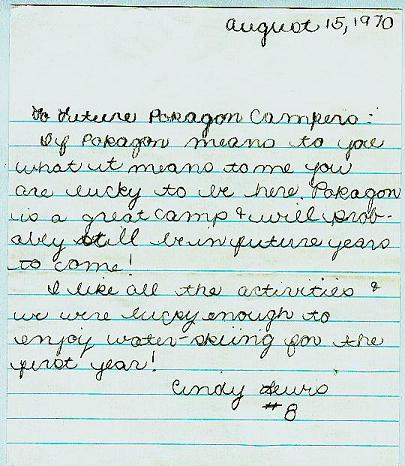 August 15, 1970
To Future Paragon Campers:
If Paragon means to you
what it means to me you
are lucky to be here. Paragon
is a great camp & will prob-
ably still be in future years
to come!
I like all the activities &
we were lucky enough to
enjoy water-skiing for the
first year!
Cindy Lewis
#8